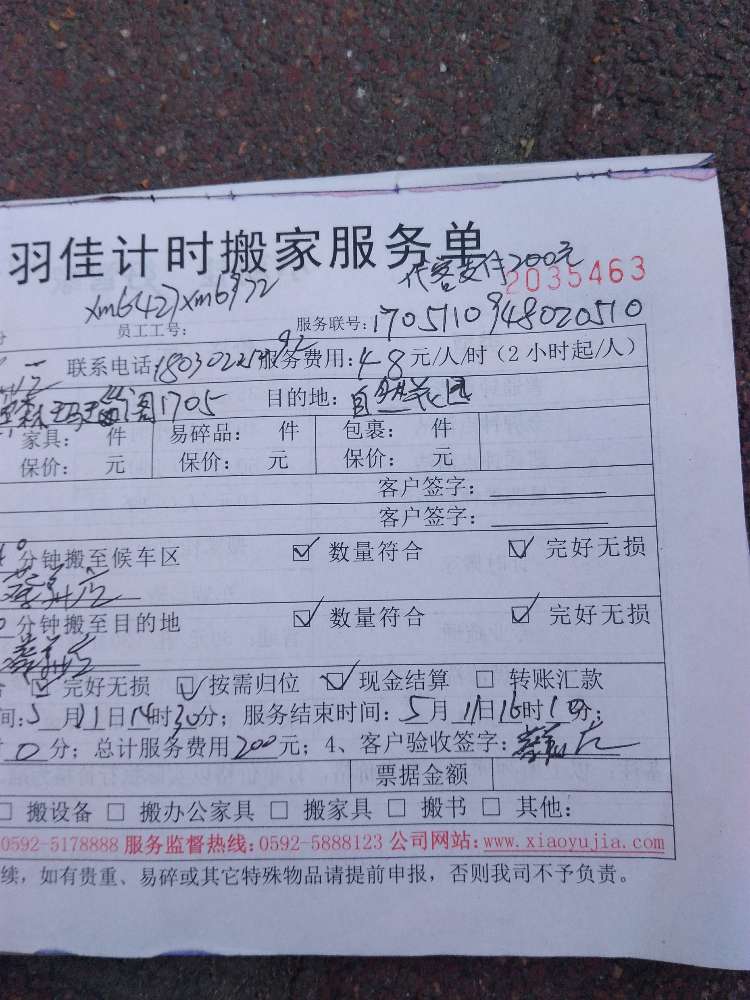 羽佳计时搬家服务单
代客支付200元
2035463
xm6427 xm6972
员工工号:
服务联号:1705110948020510
联系电话: 服务费用:48元/人/时(2小时起/人)
阁1705 目的地:自然花园
家具: 件 易碎品: 件 包裹: 件
保价: 元 保价: 元 保价: 元
客户签字:
客户签字:
分钟搬至候车区 ☑ 数量符合 ☑ 完好无损
分钟搬至目的地 ☑ 数量符合 ☑ 完好无损
☑ 完好无损 ☑ 按需归位 ☑ 现金结算 □ 转账汇款
间:5月11日14时30分; 服务结束时间:5月11日16时10分;
0分; 总计服务费用200元; 4、客户验收签字:
票据金额
□ 搬设备 □ 搬办公家具 □ 搬家具 □ 搬书 □ 其他:
0592-5178888 服务监督热线:0592-5888123 公司网站:www.xiaoyujia.com
续,如有贵重、易碎或其它特殊物品请提前申报,否则我司不予负责。